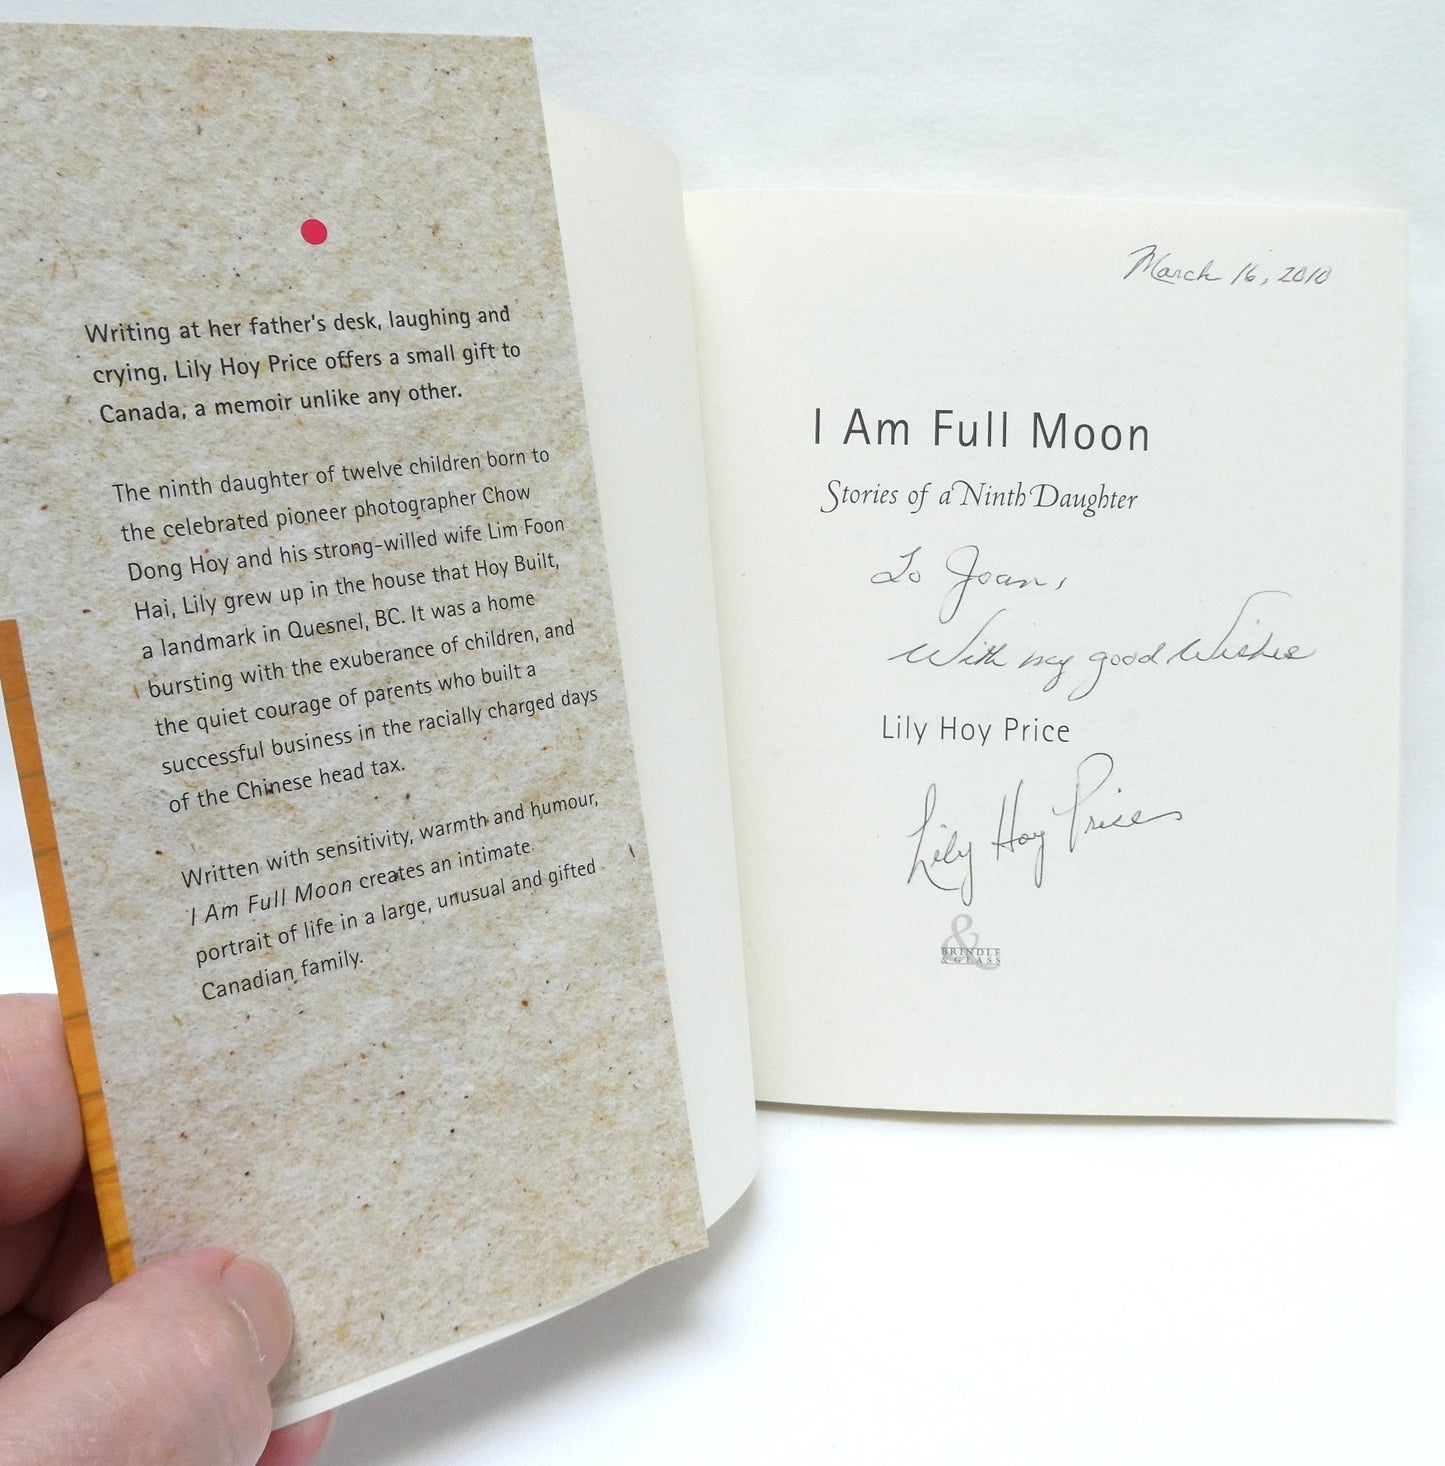 Writing at her father's desk, laughing and
crying, Lily Hoy Price offers a small gift to
Canada, a memoir unlike any other.
The ninth daughter of twelve children born to
the celebrated pioneer photographer Chow
Dong Hoy and his strong-willed wife Lim Foon
Hai, Lily grew up in the house that Hoy Built,
a landmark in Quesnel, BC. It was a home
bursting with the exuberance of children, and
the quiet courage of parents who built a
successful business in the racially charged days
of the Chinese head tax.
Written with sensitivity, warmth and humour,
I Am Full Moon creates an intimate
portrait of life in a large, unusual and gifted
Canadian family.
March 16, 2010
I Am Full Moon
Stories of a Ninth Daughter
To Joan,
With my good Wishes
Lily Hoy Price
Lily Hoy Price
&
BRINDLE
& GLASS